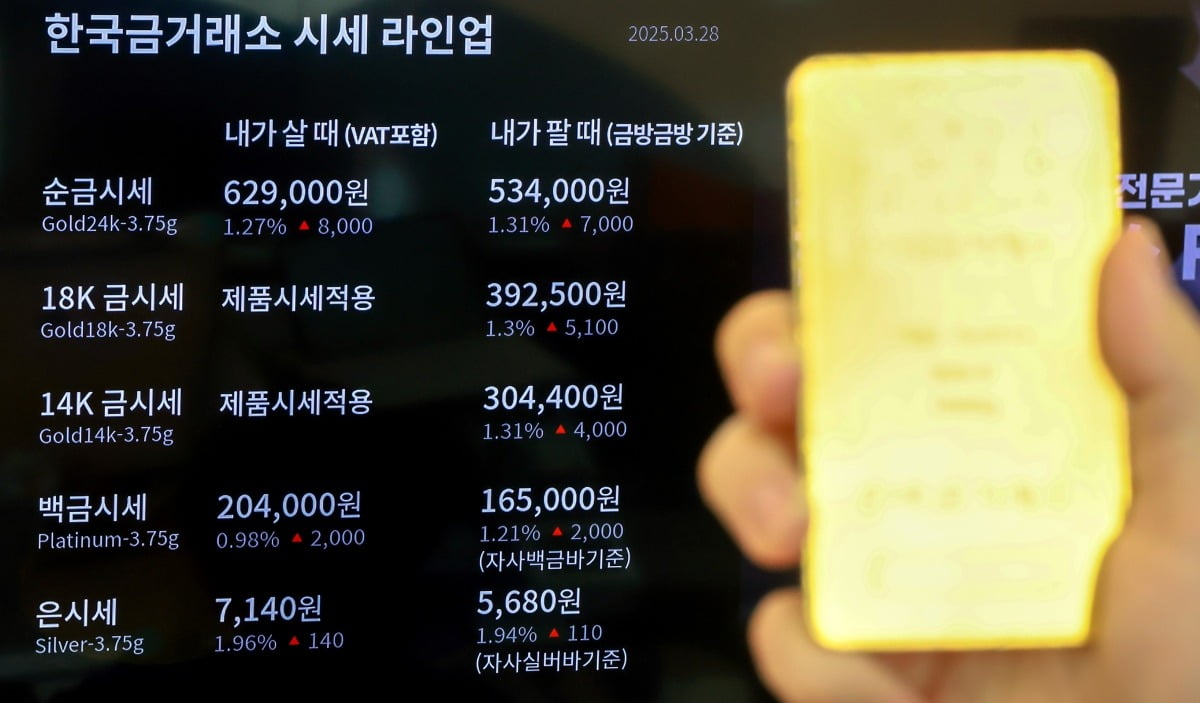 한국금거래소 시세 라인업
2025.03.28
내가 살 때 (VAT포함)
내가 팔 때 (금방금방 기준)
순금시세
Gold24k-3.75g
629,000원
1.27% ▲ 8,000
534,000원
1.31% ▲ 7,000
18K 금시세
Gold18k-3.75g
제품시세적용
392,500원
1.3% ▲ 5,100
14K 금시세
Gold14k-3.75g
제품시세적용
304,400원
1.31% ▲ 4,000
백금시세
Platinum-3.75g
204,000원
0.98% ▲ 2,000
165,000원
1.21% ▲ 2,000
(자사백금바기준)
은시세
Silver-3.75g
7,140원
1.96% ▲ 140
5,680원
1.94% ▲ 110
(자사실버바기준)